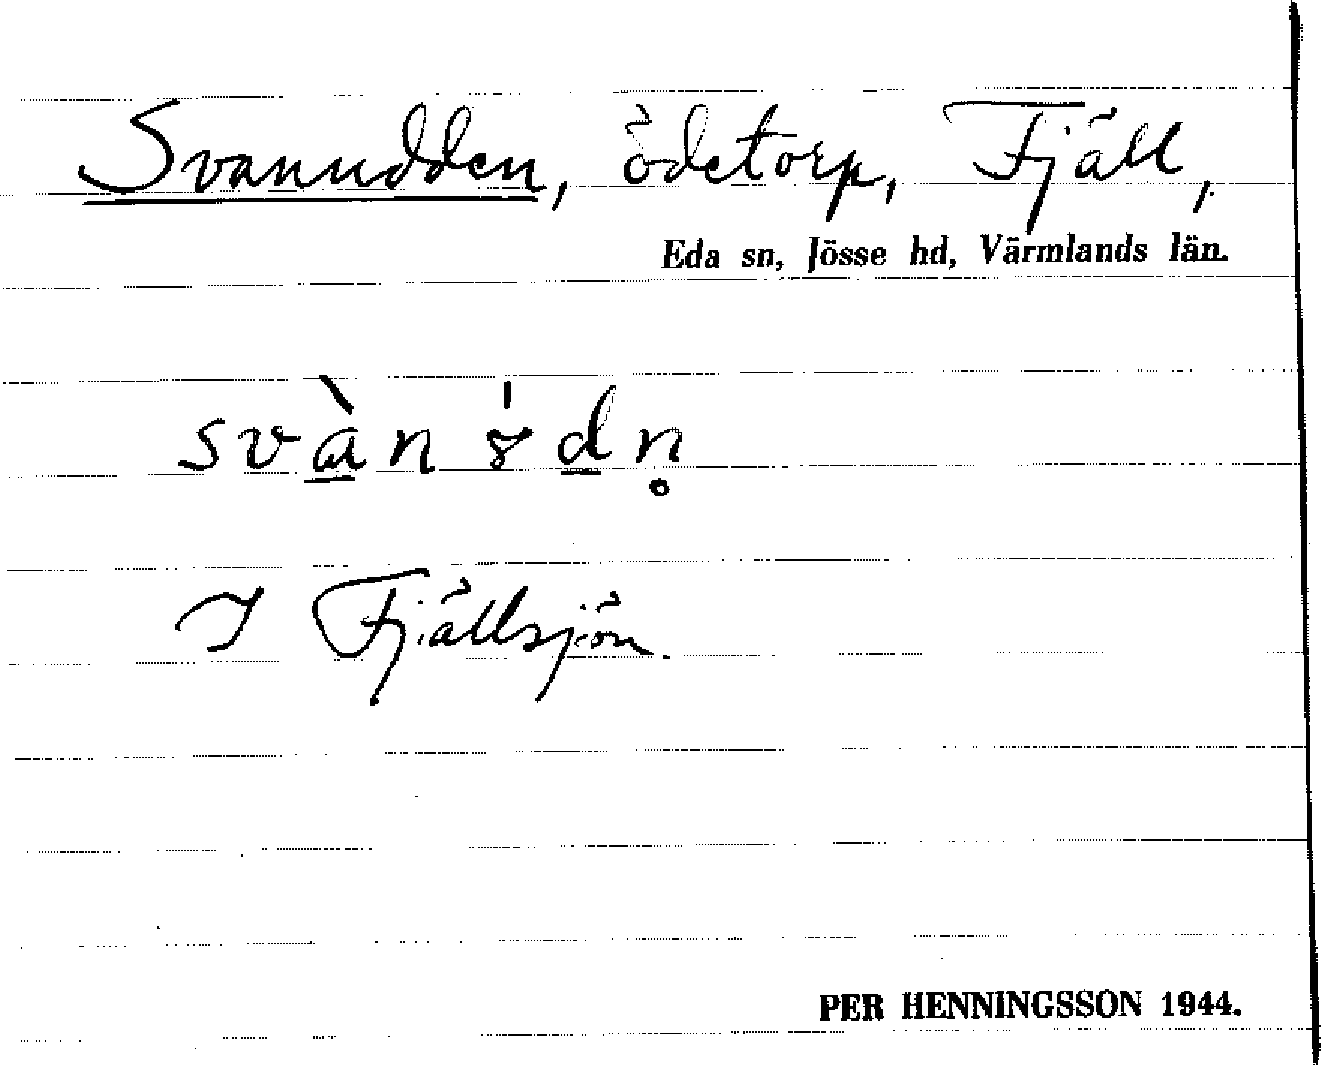 Svanudden, ödetorp, Fjäll,
Eda sn, Jösse hd, Värmlands län.
I Fjällsjön.
PER HENNINGSSON 1944.